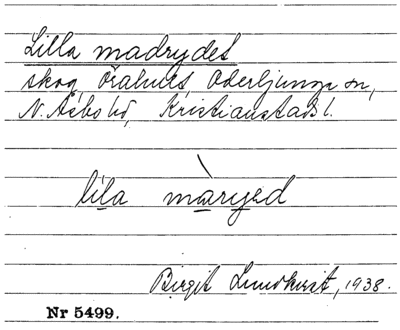 Lilla madrydet
skog, Örahult, Oderljunga sn,
N. Åsbo hd, Kristianstads l.
lila màryed
Birgit Lundkvist, 1938.
Nr 5499.